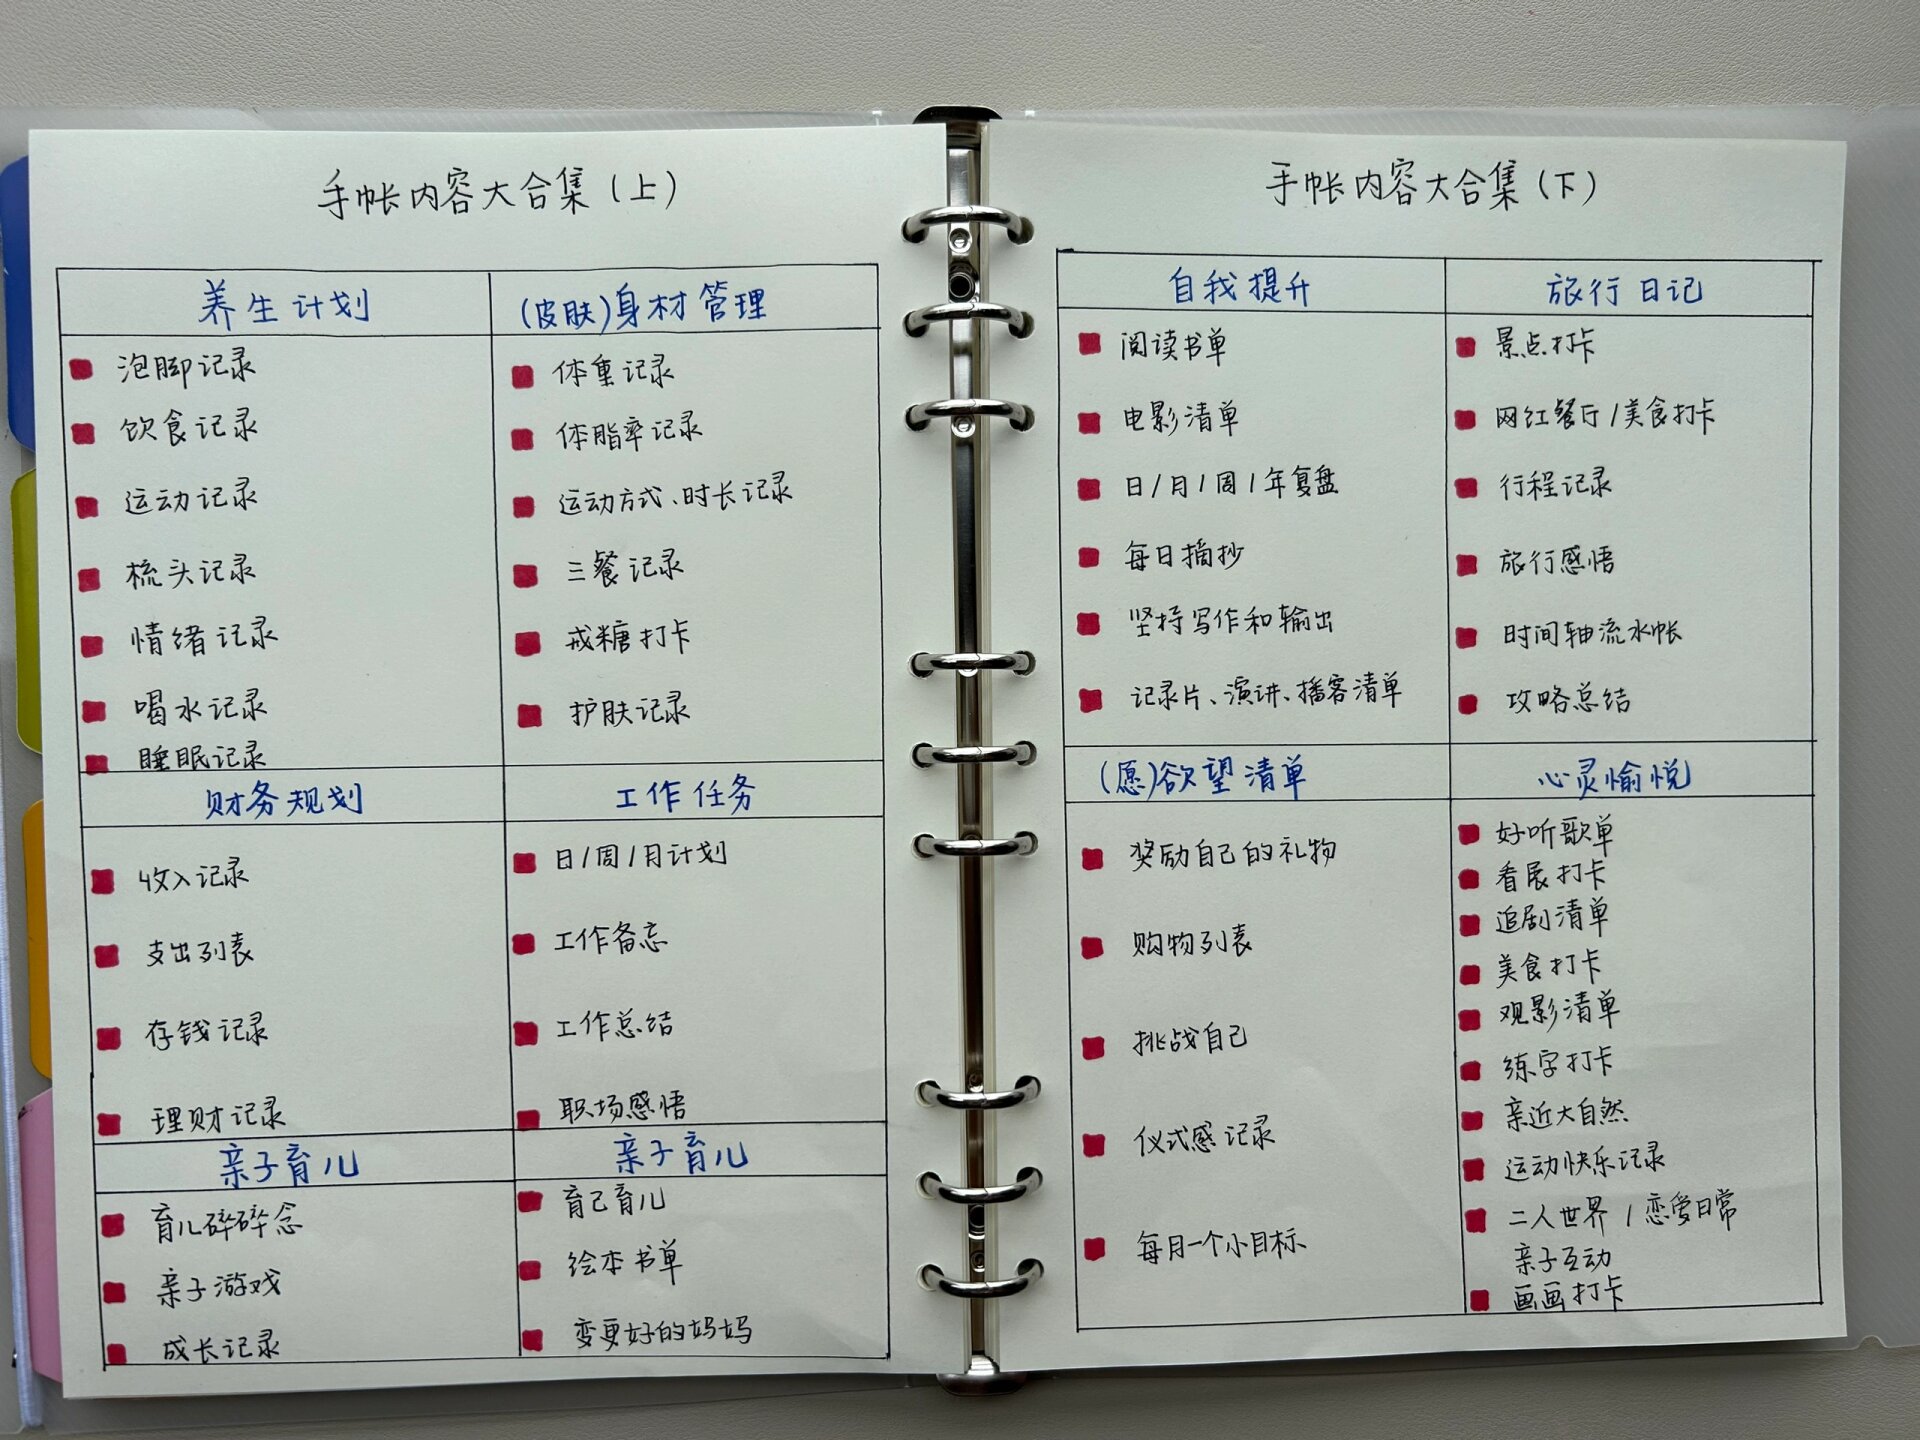 手帐内容大合集(上)
养生计划
泡脚记录
饮食记录
运动记录
梳头记录
情绪记录
喝水记录
睡眠记录
(皮肤)身材管理
体重记录
体脂率记录
运动方式、时长记录
三餐记录
戒糖打卡
护肤记录
财务规划
收入记录
支出列表
存钱记录
理财记录
工作任务
日/周/月计划
工作备忘
工作总结
职场感悟
亲子育儿
育儿碎碎念
亲子游戏
成长记录
亲子育儿
育己育儿
绘本书单
变更好的妈妈
手帐内容大合集(下)
自我提升
阅读书单
电影清单
日/月/周/年复盘
每日摘抄
坚持写作和输出
记录片、演讲、播客清单
旅行日记
景点打卡
网红餐厅/美食打卡
行程记录
旅行感悟
时间轴流水帐
攻略总结
(愿)欲望清单
奖励自己的礼物
购物列表
挑战自己
仪式感记录
每月一个小目标
心灵愉悦
好听歌单
看展打卡
追剧清单
美食打卡
观影清单
练字打卡
亲近大自然
运动快乐记录
二人世界/恋爱日常
亲子互动
画画打卡